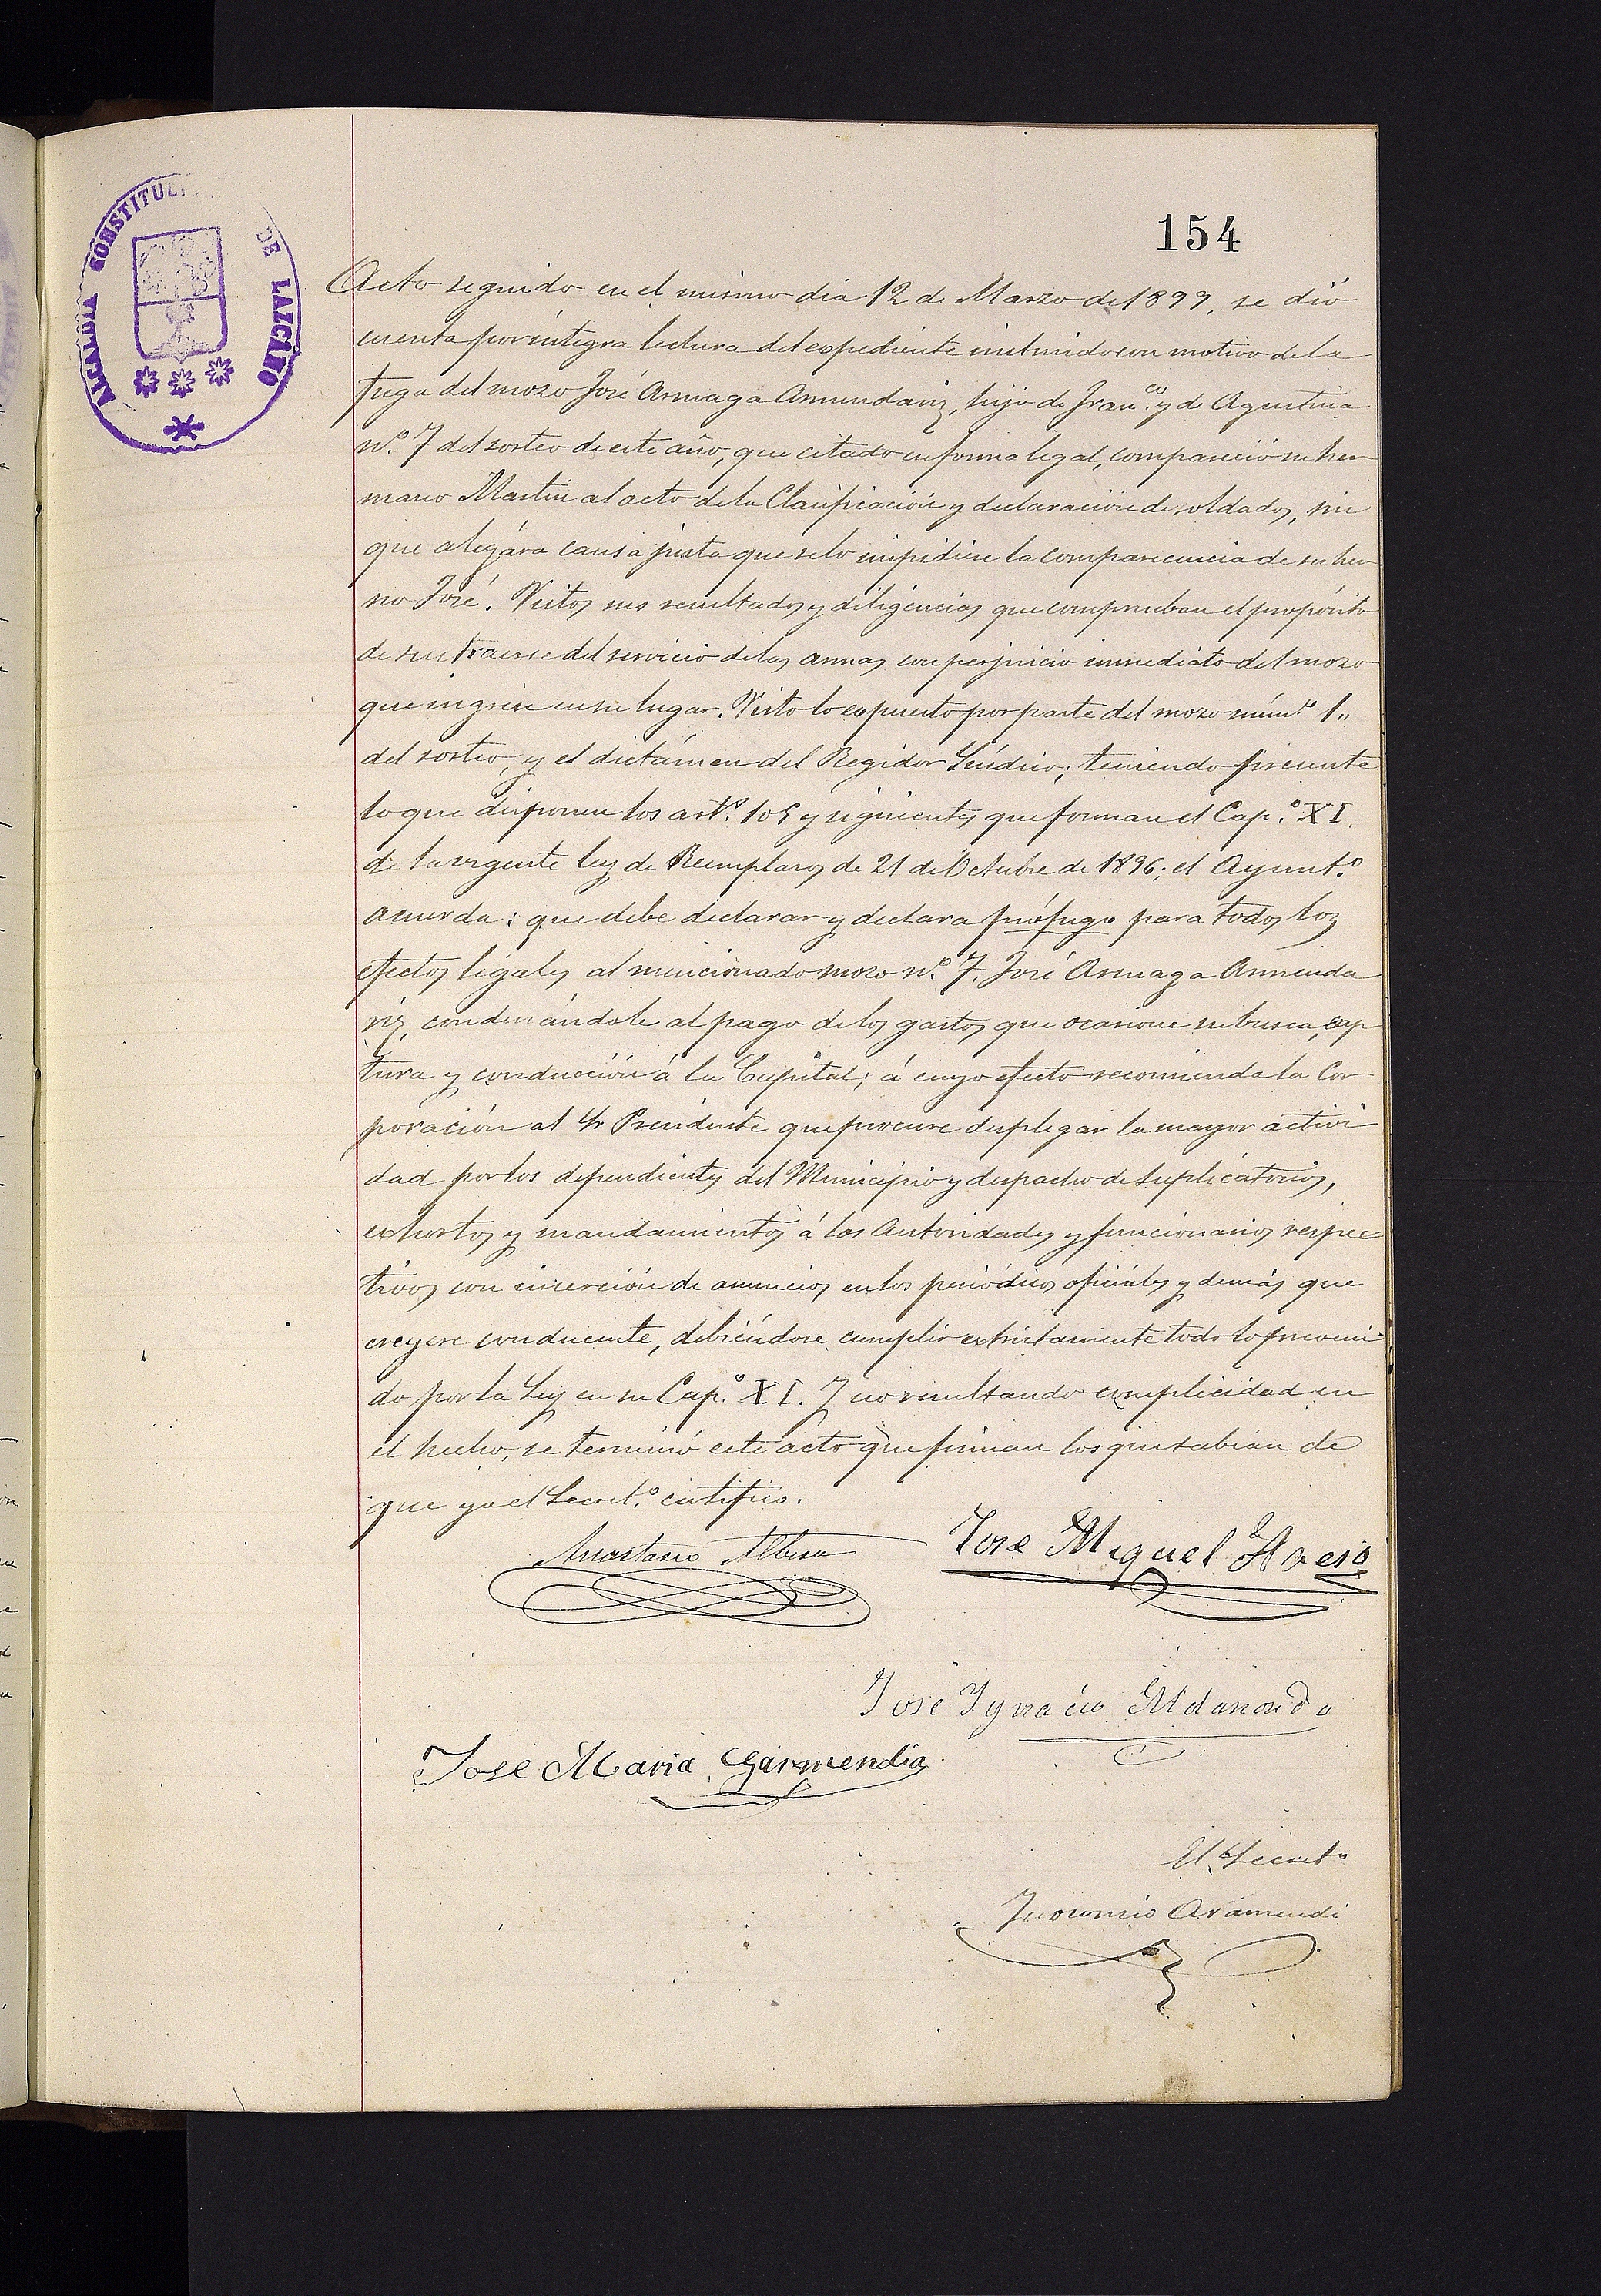 ALCALDIA CONSTITUC DE LAZCANO
154
Acto seguido en el mismo dia 12 de Marzo de 1899, se dió
cuenta por íntegra lectura del expediente instruido con motivo de la
fuga del mozo José Arruaga Armendariz, hijo de Fran.co y de Agustina
n.º 7 del sorteo de este año, que citado en forma legal, compareció su her-
mano Martin al acto de la Clasificación y declaración de soldados, sin
que alegára causa justa que se lo impidiese la comparecencia de su her-
no José. Vistos sus resultados y diligencias que comprueban el propósito
de sustraerse del servicio de las armas con perjuicio inmediato del mozo
que ingrese en su lugar. Visto lo expuesto por parte del mozo núm.º 1"
del sorteo, y el dictámen del Regidor Síndico; teniendo presente
lo que disponen los art.s 105 y siguientes que forman el Cap.º XI.
de la vigente ley de Reemplazos de 21 de Octubre de 1896; el Ayunt.º
acuerda: que debe declarar y declara prófugo para todos los
efectos legales al mencionado mozo n.º 7. José Arruaga Armenda
riz, condenándole al pago de los gastos que ocasione su busca, cap-
tura y conducción á la Capital; á cuyo efecto recomienda la Cor
poración al Sr Presidente que procure desplegar la mayor activi
dad por los dependientes del Municipio y despacho de suplicatorios,
exhortos y mandamientos á las Autoridades y funcionarios respec
tivos con inserción de anuncios en los periódicos oficiales y demás que
creyere conducente, debiéndose cumplir extrictamente todo lo preveni-
do por la Ley en su Cap.º XI. Y no resultando complicidad en
el hecho, se terminó este acto que firman los que sabian de
que yo el Secret.º certifico.
Anastasio Albisu
Jose Miguel
Jose Ygnacio Aldanondo
Jose Maria Garmendia
El Secret.º
Aramendi